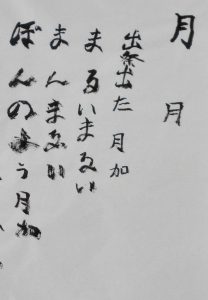 月 月
出た 月加
まるいまるい
まんまるい
ぼんのよう月加